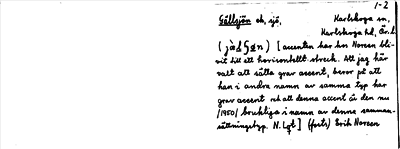 1-2
Gällsjön ek, sjö, Karlskoga sn,
Karlskoga hd, Ör. l.
[accenten har hos Noreen bli-
vit till ett horisontellt streck. Att jag här
valt att sätta grav accent, beror på att
han i andra namn av samma typ har
grav accent och att denna accent är den nu
/1950/ brukliga i namn av denna samman-
sättningstyp. N. Lgt] (forts) Erik Noreen